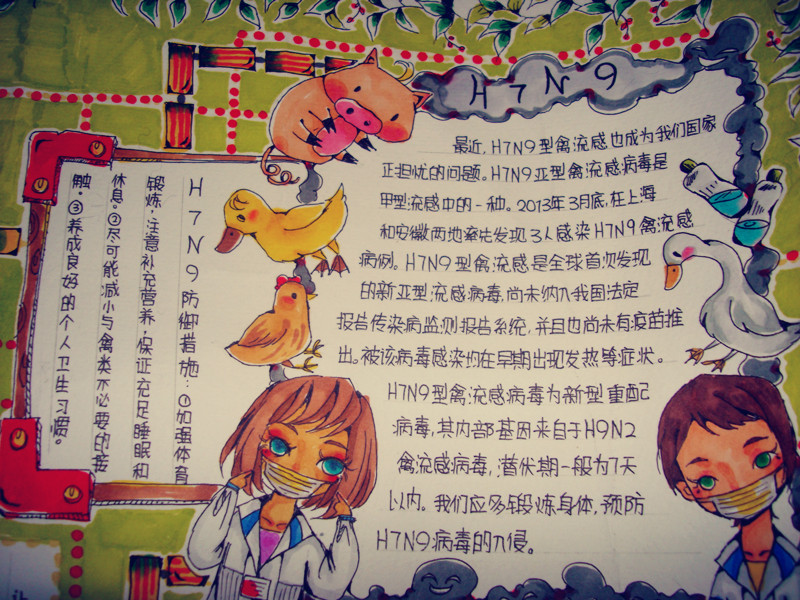 H7N9
最近,H7N9型禽流感也成为我们国家
正担忧的问题。H7N9亚型禽流感病毒是
甲型流感中的一种。2013年3月底,在上海
和安徽两地率先发现3人感染H7N9禽流感
病例。H7N9型禽流感是全球首次发现
的新亚型流感病毒,尚未纳入我国法定
报告传染病监测报告系统,并且也尚未有疫苗推
出。被该病毒感染均在早期出现发热等症状。
H7N9型禽流感病毒为新型重配
病毒,其内部基因来自于H9N2
禽流感病毒,潜伏期一般为7天
以内。我们应多锻炼身体,预防
H7N9病毒的入侵。
H7N9防御措施:①加强体育
锻炼,注意补充营养,保证充足睡眠和
休息。②尽可能减小与禽类不必要的接
触。③养成良好的个人卫生习惯。